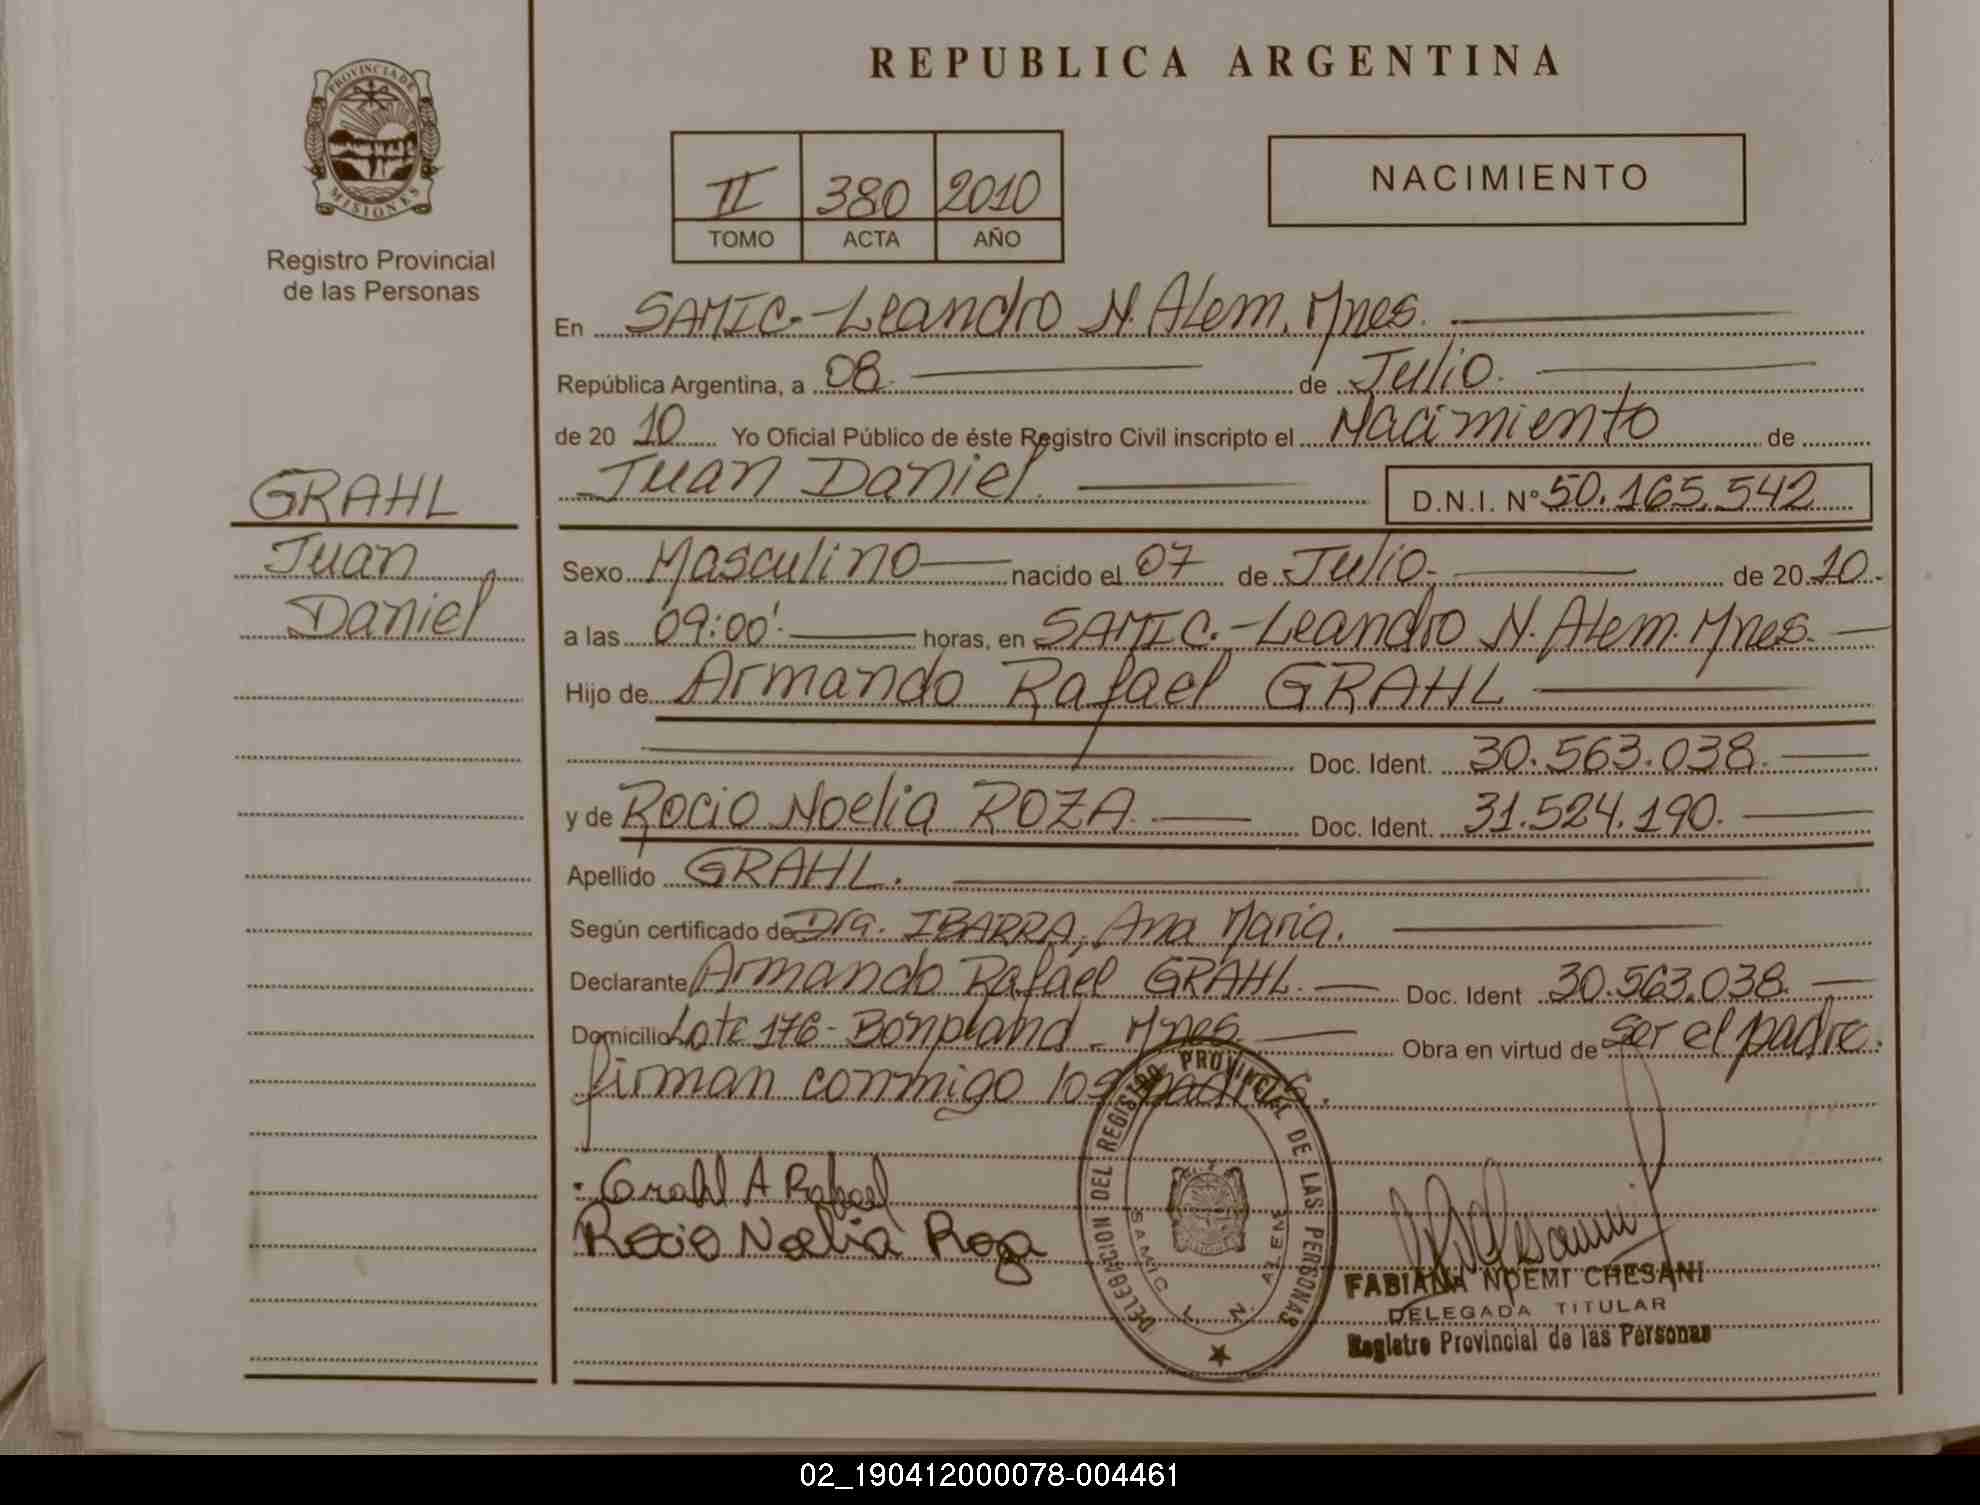 REPUBLICA ARGENTINA
PROVINCIA DE
MISIONES
Registro Provincial
de las Personas
II 380 2010
TOMO ACTA AÑO
NACIMIENTO
En SAMIC.-Leandro N. Alem. Mnes.
República Argentina, a 08. de Julio.
de 20 10 Yo Oficial Público de éste Registro Civil inscripto el Nacimiento de
Juan Daniel. D.N.I. Nº 50.165.542
GRAHL
Juan
Daniel
Sexo Masculino nacido el 07 de Julio. de 20 10.
a las 09:00'. horas, en SAMIC.-Leandro N. Alem. Mnes.
Hijo de Armando Rafael GRAHL
Doc. Ident. 30.563.038.
y de Rocio Noelia ROZA. Doc. Ident. 31.524.190.
Apellido GRAHL.
Según certificado de Dra. IBARRA, Ana Maria.
Declarante Armando Rafael GRAHL. Doc. Ident 30.563.038.
Domicilio Lote 176- Bonpland - Mnes. Obra en virtud de ser el padre.
firman conmigo los padres.
Grahl A Rafael
Rocio Noelia Roza
DELEGACION DEL REGISTRO PROVINCIAL DE LAS PERSONAS
SAMIC L. N. ALEM
FABIANA NOEMI CHESANI
DELEGADA TITULAR
Registro Provincial de las Personas
02_190412000078-004461